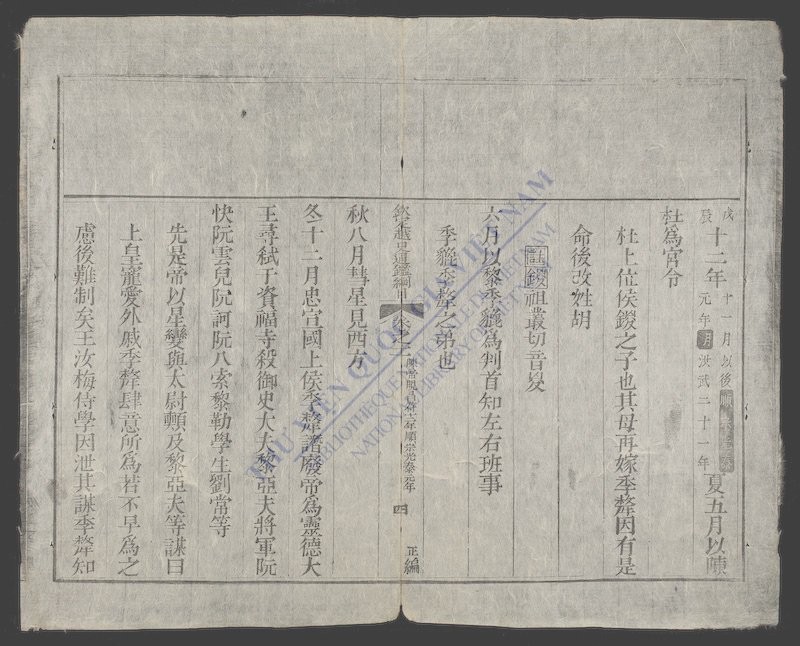 戊辰
十二年
十一月以後
元年明洪武二十一年
夏五月以
杜爲宮令
杜上位侯鍐之子也其母再嫁季犛因有是
命後改姓胡
註鍐祖叢切音㚇
六月以黎季貔爲判首知左右班事
季貔季犛之弟也
越史通鑑綱目
順宗光泰元年
四
正編
秋八月彗星見西方
冬十二月忠宣國上侯季犛譖廢帝爲靈德大
王尋弑于資福寺殺御史大夫黎亞夫將軍阮
快阮雲兒阮訶阮八索黎勒學生劉常等
先是帝以星變與太尉頵及黎亞夫等謀曰
上皇寵愛外戚季犛肆意所爲若不早爲之
慮後難制矣王汝梅侍學因泄其謀季犛知
THƯ VIỆN QUỐC GIA VIỆT NAM
BIBLIOTHÈQUE NATIONALE DU VIETNAM
NATIONAL LIBRARY OF VIETNAM